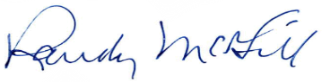 Randy McGill